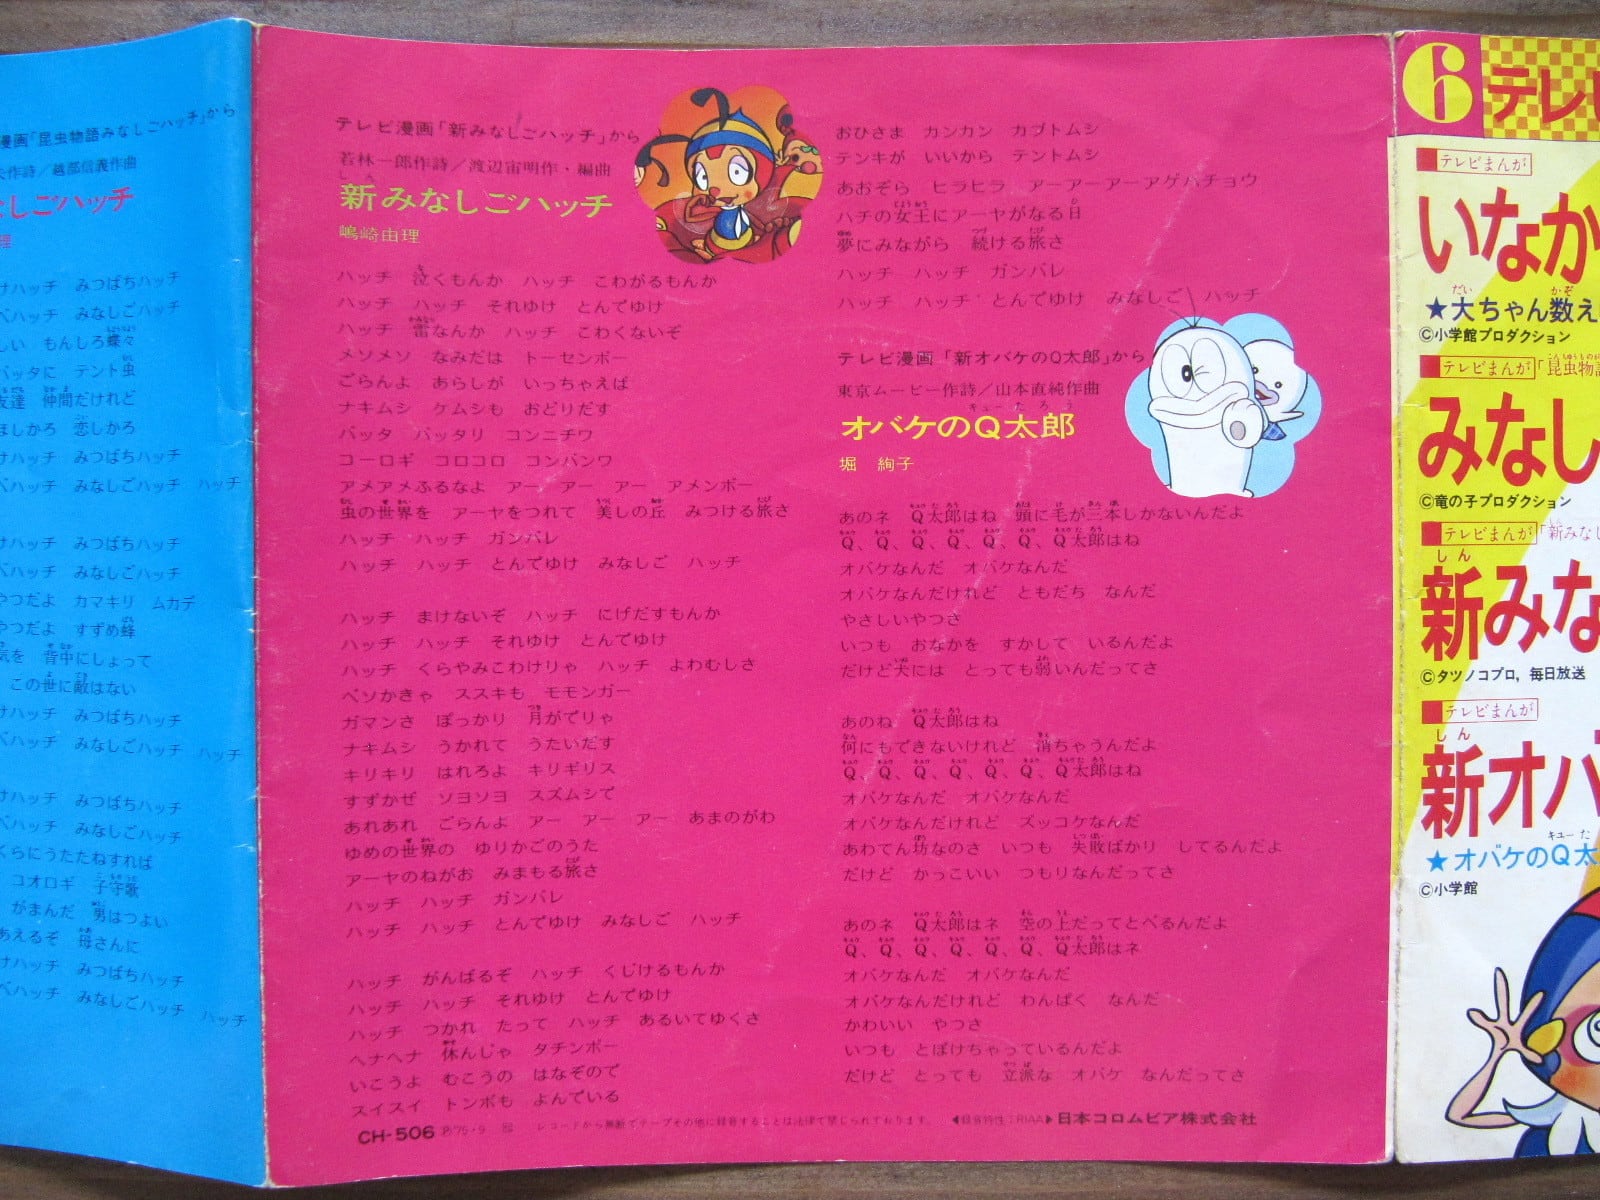 漫画「昆虫物語みなしごハッチ」から
作詩／越部信義作曲
なしごハッチ
理
けハッチ みつばちハッチ
ハッチ みなしごハッチ
しい もんしろ蝶々
バッタに テント虫
友達 仲間だけれど
ほしかろ 恋しかろ
けハッチ みつばちハッチ
ハッチ みなしごハッチ ハッチ
けハッチ みつばちハッチ
ハッチ みなしごハッチ
やつだよ カマキリ ムカデ
やつだよ すずめ蜂
気を 背中にしょって
この世に敵はない
けハッチ みつばちハッチ
ハッチ みなしごハッチ ハッチ
けハッチ みつばちハッチ
ハッチ みなしごハッチ
くらにうたたねすれば
コオロギ 子守歌
がまんだ 男はつよい
あえるぞ 母さんに
けハッチ みつばちハッチ
ハッチ みなしごハッチ ハッチ
テレビ漫画「新みなしごハッチ」から
若林一郎作詩／渡辺宙明作・編曲
新みなしごハッチ
嶋崎由理
ハッチ 泣くもんか ハッチ こわがるもんか
ハッチ ハッチ それゆけ とんでゆけ
ハッチ 雷なんか ハッチ こわくないぞ
メソメソ なみだは トーセンボー
ごらんよ あらしが いっちゃえば
ナキムシ ケムシも おどりだす
バッタ バッタリ コンニチワ
コーロギ コロコロ コンバンワ
アメアメふるなよ アー アー アー アメンボー
虫の世界を アーヤをつれて 美しの丘 みつける旅さ
ハッチ ハッチ ガンバレ
ハッチ ハッチ とんでゆけ みなしご ハッチ
ハッチ まけないぞ ハッチ にげだすもんか
ハッチ ハッチ それゆけ とんでゆけ
ハッチ くらやみこわけりゃ ハッチ よわむしさ
ベソかきゃ ススキも モモンガー
ガマンさ ぽっかり 月がでりゃ
ナキムシ うかれて うたいだす
キリキリ はれろよ キリギリス
すずかぜ ソヨソヨ スズムシで
あれあれ ごらんよ アー アー アー あまのがわ
ゆめの世界の ゆりかごのうた
アーヤのねがお みまもる旅さ
ハッチ ハッチ ガンバレ
ハッチ ハッチ とんでゆけ みなしご ハッチ
ハッチ がんばるぞ ハッチ くじけるもんか
ハッチ ハッチ それゆけ とんでゆけ
ハッチ つかれ たって ハッチ あるいてゆくさ
ヘナヘナ 休んじゃ タチンボー
いこうよ むこうの はなぞので
スイスイ トンボも よんでいる
おひさま カンカン カブトムシ
テンキが いいから テントムシ
あおぞら ヒラヒラ アーアーアーアゲハチョウ
ハチの女王にアーヤがなる日
夢にみながら 続ける旅さ
ハッチ ハッチ ガンバレ
ハッチ ハッチ とんでゆけ みなしご ハッチ
テレビ漫画「新オバケのQ太郎」から
東京ムービー作詩／山本直純作曲
キュー た ろう
オバケのQ太郎
堀 絢子
あのネ Q太郎はね 頭に毛が三本しかないんだよ
Q、Q、Q、Q、Q、Q、Q太郎はね
オバケなんだ オバケなんだ
オバケなんだけれど ともだち なんだ
やさしいやつさ
いつも おなかを すかして いるんだよ
だけど犬には とっても弱いんだってさ
あのね Q太郎はね
何にもできないけれど 消ちゃうんだよ
Q、Q、Q、Q、Q、Q、Q太郎はね
オバケなんだ オバケなんだ
オバケなんだけれど ズッコケなんだ
あわてん坊なのさ いつも 失敗ばかり してるんだよ
だけど かっこいい つもりなんだってさ
あのネ Q太郎はネ 空の上だってとべるんだよ
Q、Q、Q、Q、Q、Q、Q太郎はネ
オバケなんだ オバケなんだ
オバケなんだけれど わんぱく なんだ
かわいい やつさ
いつも とぼけちゃっているんだよ
だけど とっても 立派な オバケ なんだってさ
CH-506 ℗'75・9 レコードから無断でテープその他に録音することは法律で禁じられております。 ◀録音特性：RIAA▶日本コロムビア株式会社
6 テレビ
テレビまんが
いなか
だい かぞ
★大ちゃん数え
©小学館プロダクション
テレビまんが「昆虫物語
みなし
©竜の子プロダクション
テレビまんが「新みなし
しん
新みな
©タツノコプロ, 毎日放送
テレビまんが
しん
新オバ
キュー た
★オバケのQ太
©小学館